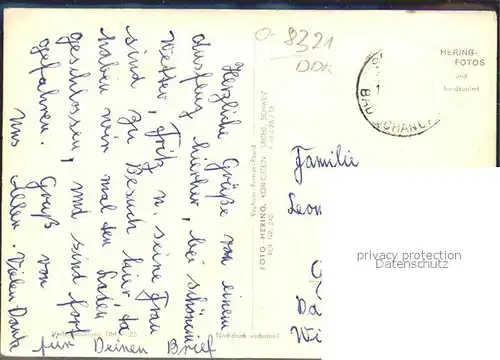 Herzliche Grüße von einem
Ausflug hierher, bei schönem
Wetter, Fritz u. seine Frau
sind zu Besuch hier, da
haben wir mal den Laden
geschlossen, und sind fort
gefahren. Gruß von
uns Allen. Vielen Dank
für Deinen Brief
8321
DDR
HERING-
FOTOS
sind
handkopiert
BAD SCHANDA
FOTO-HERING, KÖNIGSTEIN SÄCHS. SCHWEIZ
Nachdruck verboten!
Familie
Leon
privacy protection
Datenschutz
Da
Wi